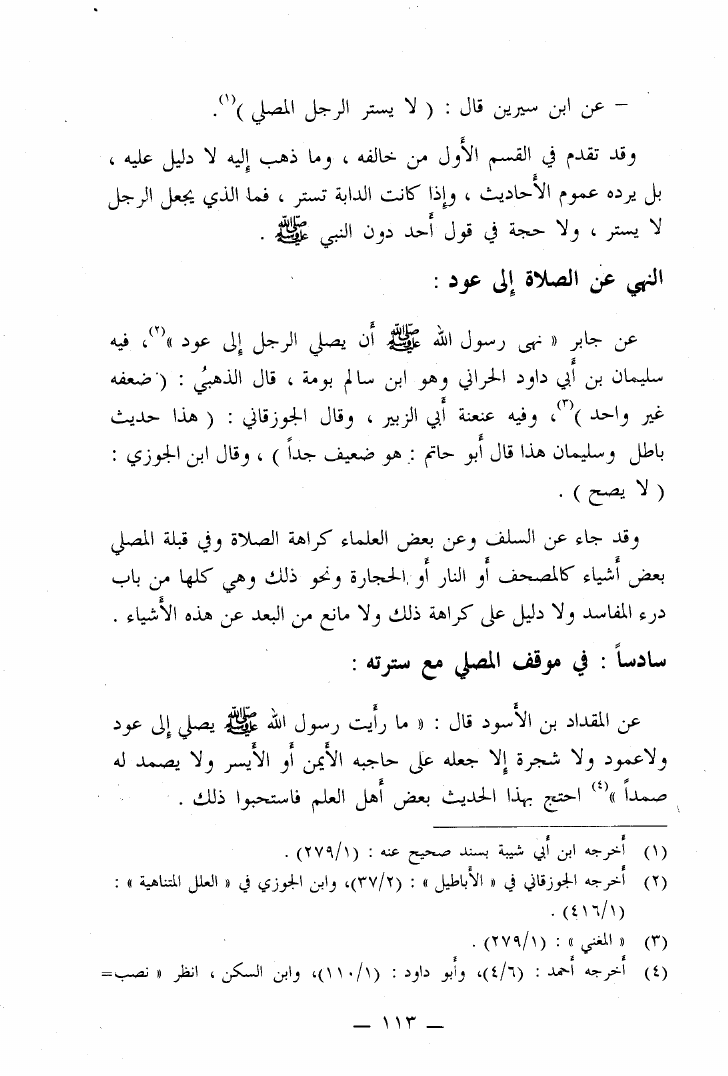 – عن ابن سيرين قال : ( لا يستر الرجل المصلي )(١).
وقد تقدم في القسم الأول من خالفه ، وما ذهب إليه لا دليل عليه ،
بل يرده عموم الأحاديث ، وإذا كانت الدابة تستر ، فما الذي يجعل الرجل
لا يستر ، ولا حجة في قول أحد دون النبي ﷺ .
النهي عن الصلاة إلى عود :
عن جابر « نهى رسول الله ﷺ أن يصلي الرجل إلى عود »(٢)، فيه
سليمان بن أبي داود الحراني وهو ابن سالم بومة ، قال الذهبيُ : ( ضعفه
غير واحد )(٣)، وفيه عنعنة أبي الزبير ، وقال الجوزقاني : ( هذا حديث
باطل وسليمان هذا قال أبو حاتم : هو ضعيف جداً ) ، وقال ابن الجوزي :
( لا يصح ) .
وقد جاء عن السلف وعن بعض العلماء كراهة الصلاة وفي قبلة المصلي
بعض أشياء كالمصحف أو النار أو الحجارة ونحو ذلك وهي كلها من باب
درء المفاسد ولا دليل على كراهة ذلك ولا مانع من البعد عن هذه الأشياء .
سادساً : في موقف المصلي مع سترته :
عن المقداد بن الأسود قال : « ما رأيت رسول الله ﷺ يصلي إلى عود
ولاعمود ولا شجرة إلا جعله على حاجبه الأيمن أو الأيسر ولا يصمد له
صمداً »(٤) احتج بهذا الحديث بعض أهل العلم فاستحبوا ذلك .
(١) أخرجه ابن أبي شيبة بسند صحيح عنه : (٢٧٩/١) .
(٢) أخرجه الجوزقاني في « الأباطيل » : (٣٧/٢)، وابن الجوزي في « العلل المتناهية » :
(٤١٦/١) .
(٣) « المغني » : (٢٧٩/١) .
(٤) أخرجه أحمد : (٤/٦)، وأبو داود : (١١٠/١)، وابن السكن ، انظر « نصب=
– ١١٣ –